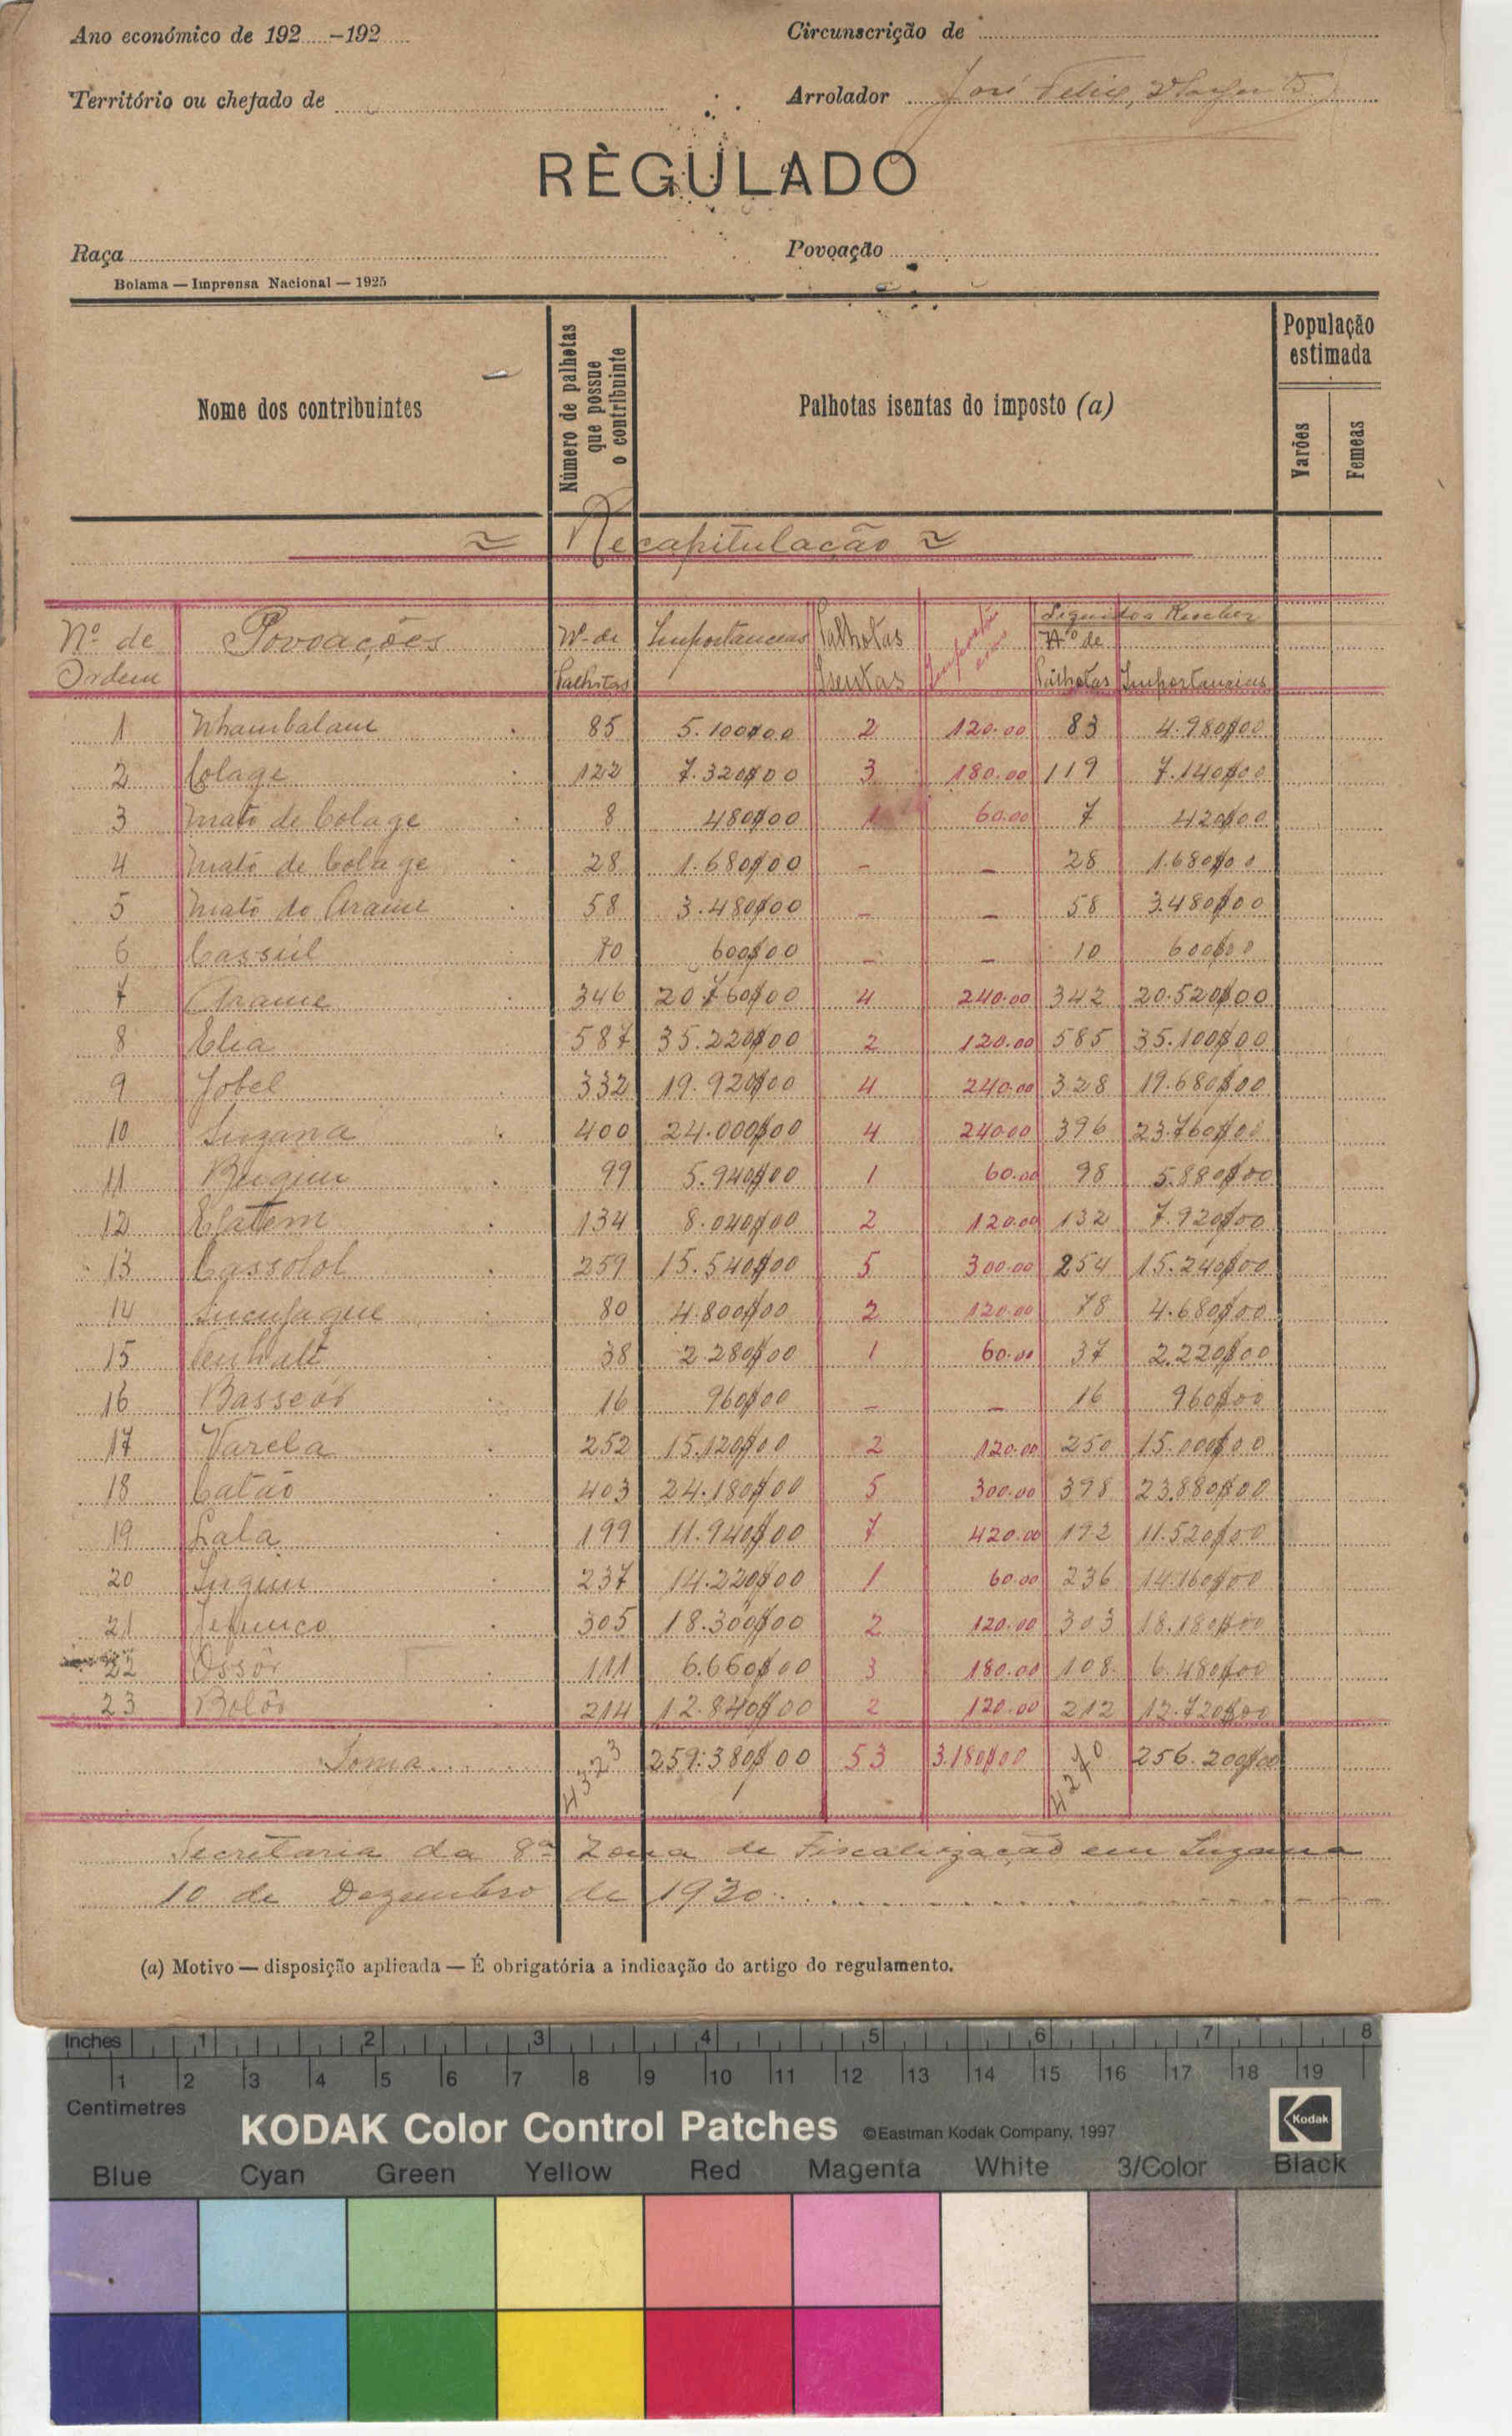 Ano económico de 192.....-192.....
Circunscrição de
Território ou chefado de
Arrolador José Felix
RÈGULADO
Raça
Povoação
Bolama — Imprensa Nacional — 1925
Nome dos contribuintes
Número de palhotas que possue o contribuinte
Palhotas isentas do imposto (a)
População estimada
Varões
Femeas
Recapitulacão
Nº de Ordem
Povoações
Nº de Palhotas
Importancias
Palhotas Isentas
Liquidos a Receber
Nº de Palhotas
Importancias
1 Nhambalam 85 5.100$00 2 120.00 83 4.980$00
2 Colage 122 7.320$00 3 180.00 119 7.140$00
3 Mato de Colage 8 480$00 1 60.00 7 420$00
4 Mato de Colage 28 1.680$00 - - 28 1.680$00
5 Mato do Arame 58 3.480$00 - - 58 3.480$00
6 Cassiil 10 600$00 - - 10 600$00
7 Arame 346 20.760$00 4 240.00 342 20.520$00
8 Elia 587 35.220$00 2 120.00 585 35.100$00
9 Jobel 332 19.920$00 4 240.00 328 19.680$00
10 Suzana 400 24.000$00 4 240.00 396 23.760$00
11 99 5.940$00 1 60.00 98 5.880$00
12 134 8.040$00 2 120.00 132 7.920$00
13 Cassolol 259 15.540$00 5 300.00 254 15.240$00
14 Sucujaque 80 4.800$00 2 120.00 78 4.680$00
15 38 2.280$00 1 60.00 37 2.220$00
16 Basseór 16 960$00 - - 16 960$00
17 Varela 252 15.120$00 2 120.00 250 15.000$00
18 Catão 403 24.180$00 5 300.00 398 23.880$00
19 Lala 199 11.940$00 7 420.00 192 11.520$00
20 237 14.220$00 1 60.00 236 14.160$00
21 Jefunco 305 18.300$00 2 120.00 303 18.180$00
22 Ossôr 111 6.660$00 3 180.00 108 6.480$00
23 Bolôr 214 12.840$00 2 120.00 212 12.720$00
Soma 4323 259:380$00 53 3.180$00 4270 256.200$00
Secretaria da 8ª Zona de Fiscalização em Suzana
10 de Dezembro de 1930
(a) Motivo — disposição aplicada — É obrigatória a indicação do artigo do regulamento.
Inches 1 2 3 4 5 6 7 8
1 2 3 4 5 6 7 8 9 10 11 12 13 14 15 16 17 18 19
Centimetres
KODAK Color Control Patches ©Eastman Kodak Company, 1997 Kodak
Blue Cyan Green Yellow Red Magenta White 3/Color Black